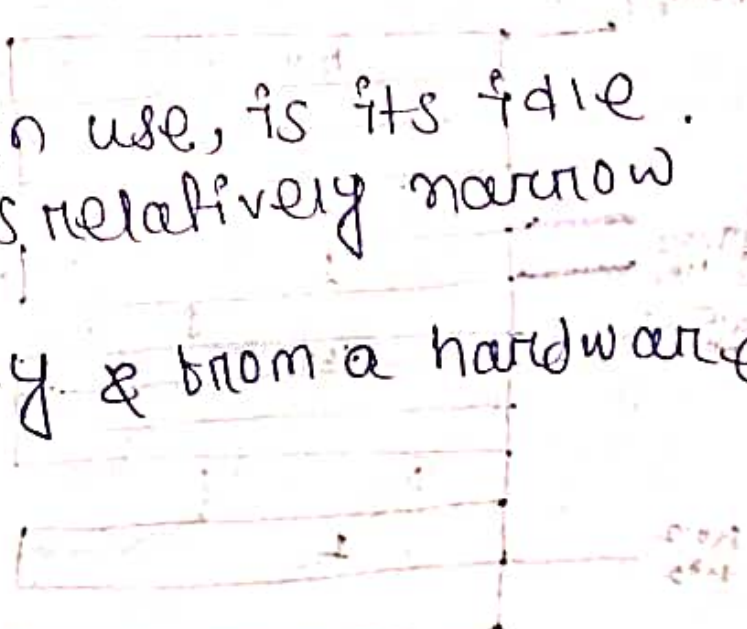 n use, is its idle.
s relatively narrow
y & from a hardware